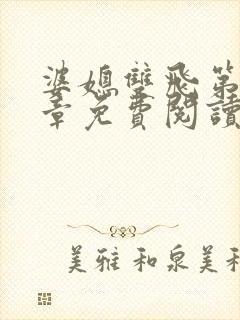 婆媳雙飛第
章免費閱讀
美雅和泉美和